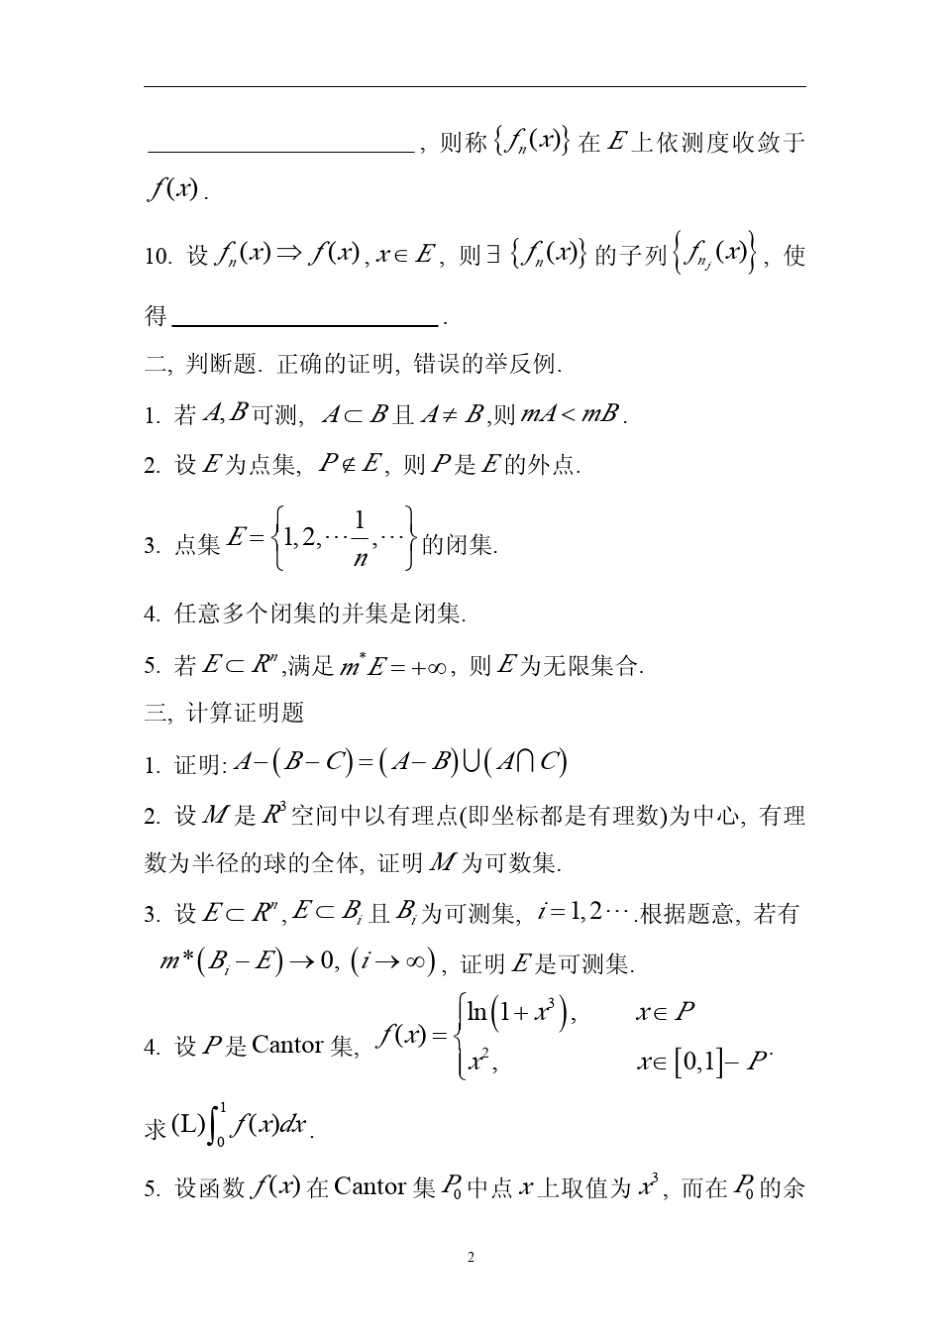 ____________________, 则称 {fₙ(x)} 在 E 上依测度收敛于
f(x).
10. 设 fₙ(x)⇒f(x), x∈E, 则∃{fₙ(x)} 的子列{f_{n_j}(x)}, 使
得____________________.
二, 判断题. 正确的证明, 错误的举反例.
1. 若 A,B可测, A⊂B且 A≠B,则mA<mB.
2. 设 E为点集, P∉E, 则 P是 E的外点.
3. 点集 E={1,2,⋯1/n,⋯}的闭集.
4. 任意多个闭集的并集是闭集.
5. 若 E⊂Rⁿ,满足 m*E=+∞, 则 E为无限集合.
三, 计算证明题
1. 证明: A−(B−C)=(A−B)⋃(A⋂C)
2. 设 M 是 R³空间中以有理点(即坐标都是有理数)为中心, 有理
数为半径的球的全体, 证明 M 为可数集.
3. 设 E⊂Rⁿ, E⊂Bᵢ且 Bᵢ为可测集, i=1,2⋯.根据题意, 若有
m*(Bᵢ−E)→0, (i→∞), 证明 E是可测集.
4. 设 P是 Cantor 集, f(x)={ln(1+x³), x∈P
x², x∈[0,1]−P.
求 (L)∫₀¹f(x)dx.
5. 设函数 f(x) 在 Cantor 集 P₀中点 x 上取值为 x³, 而在 P₀的余
2